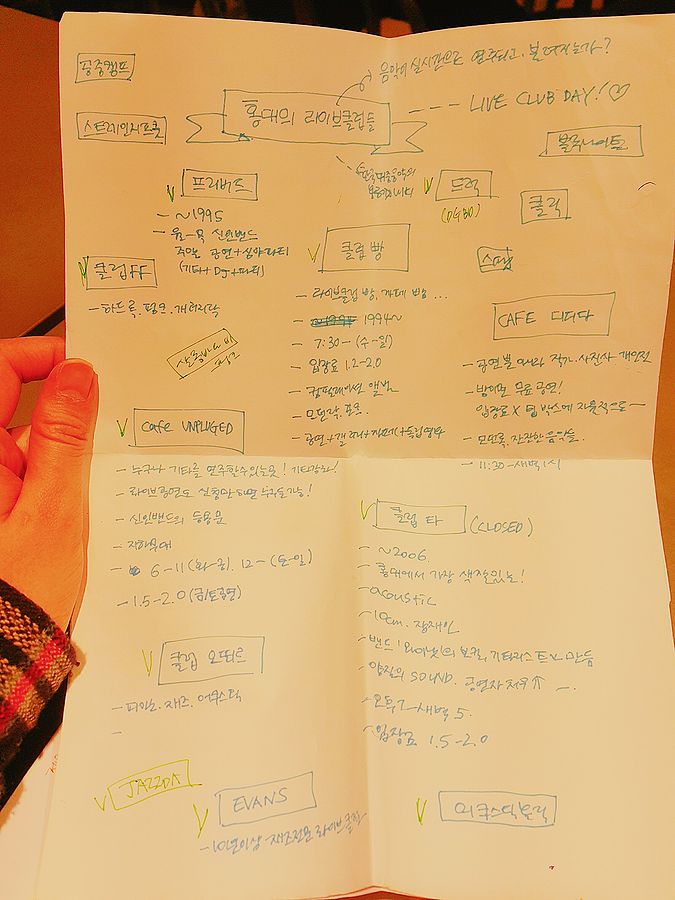 공중캠프
음악이 실시간으로 연주되고, 보여지는가?
홍대의 라이브클럽들
LIVE CLUB DAY! ♡
스트레인지프룻
블루나이트
프리버드
~1995
신인밴드
주말 공연+심야파티
(기타+DJ+파티)
드럭
(DGBD)
클릭
클럽 빵
클럽FF
- 하드록, 펑크, 개러지락
살롱바다비
- 라이브클럽 빵, 카페 빵...
- 1994~
- 7:30- (수-일)
- 입장료 1.2-2.0
- 컴필레이션 앨범
- 모던락, 포크
CAFE 디디다
- 공연뿐 아니라 작가, 사진사 개인전
- 밤이면 무료공연!
입장료 X 팁 박스에 자율적으로~
- 모던록, 잔잔한 음악들.
- 11:30-새벽1시
Cafe UNPLUGED
- 누구나 기타를 연주할수있는곳! 기타강좌!
- 라이브공연도 신청만 하면 누구든가능!
- 신인밴드의 등용문
- 지하무대
- 6-11 (화-금). 12- (토-일)
- 1.5-2.0 (금/토공연)
클럽 타 (CLOSED)
- ~2006.
- 홍대에서 가장 색깔있는!
- acoustic
- 10cm. 장재인
- 밴드 '와이낫'의 보컬, 기타리스트가 만듬
- 양질의 SOUND. 공연자 처우↑
- 오후7-새벽 5.
- 입장료 1.5-2.0
클럽 오뙤르
- 피아노. 재즈. 어쿠스틱
-
JAZZDA
EVANS
- 10년이상 재즈전문 라이브클럽
어쿠스틱홀릭